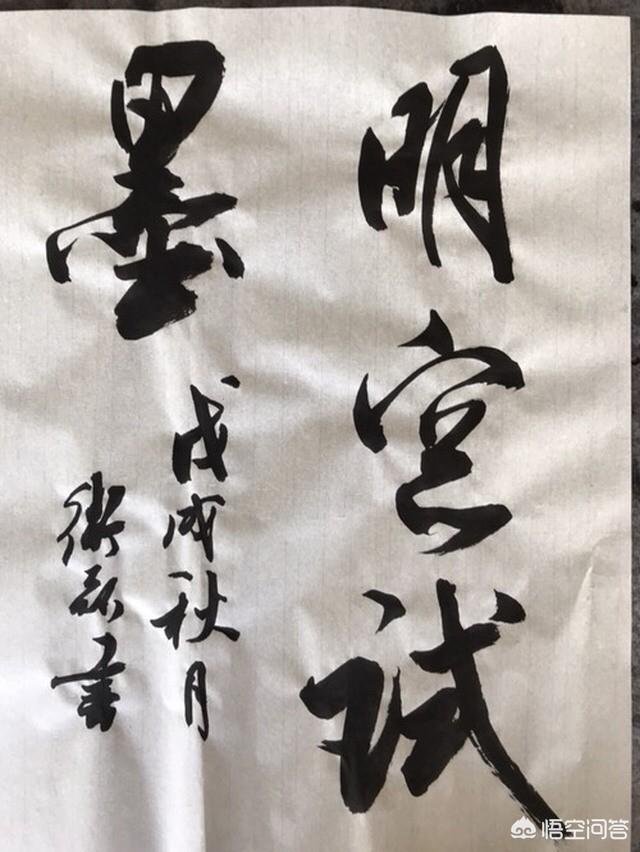 明宫试
墨
戊戌秋月
卫磊书
悟空问答